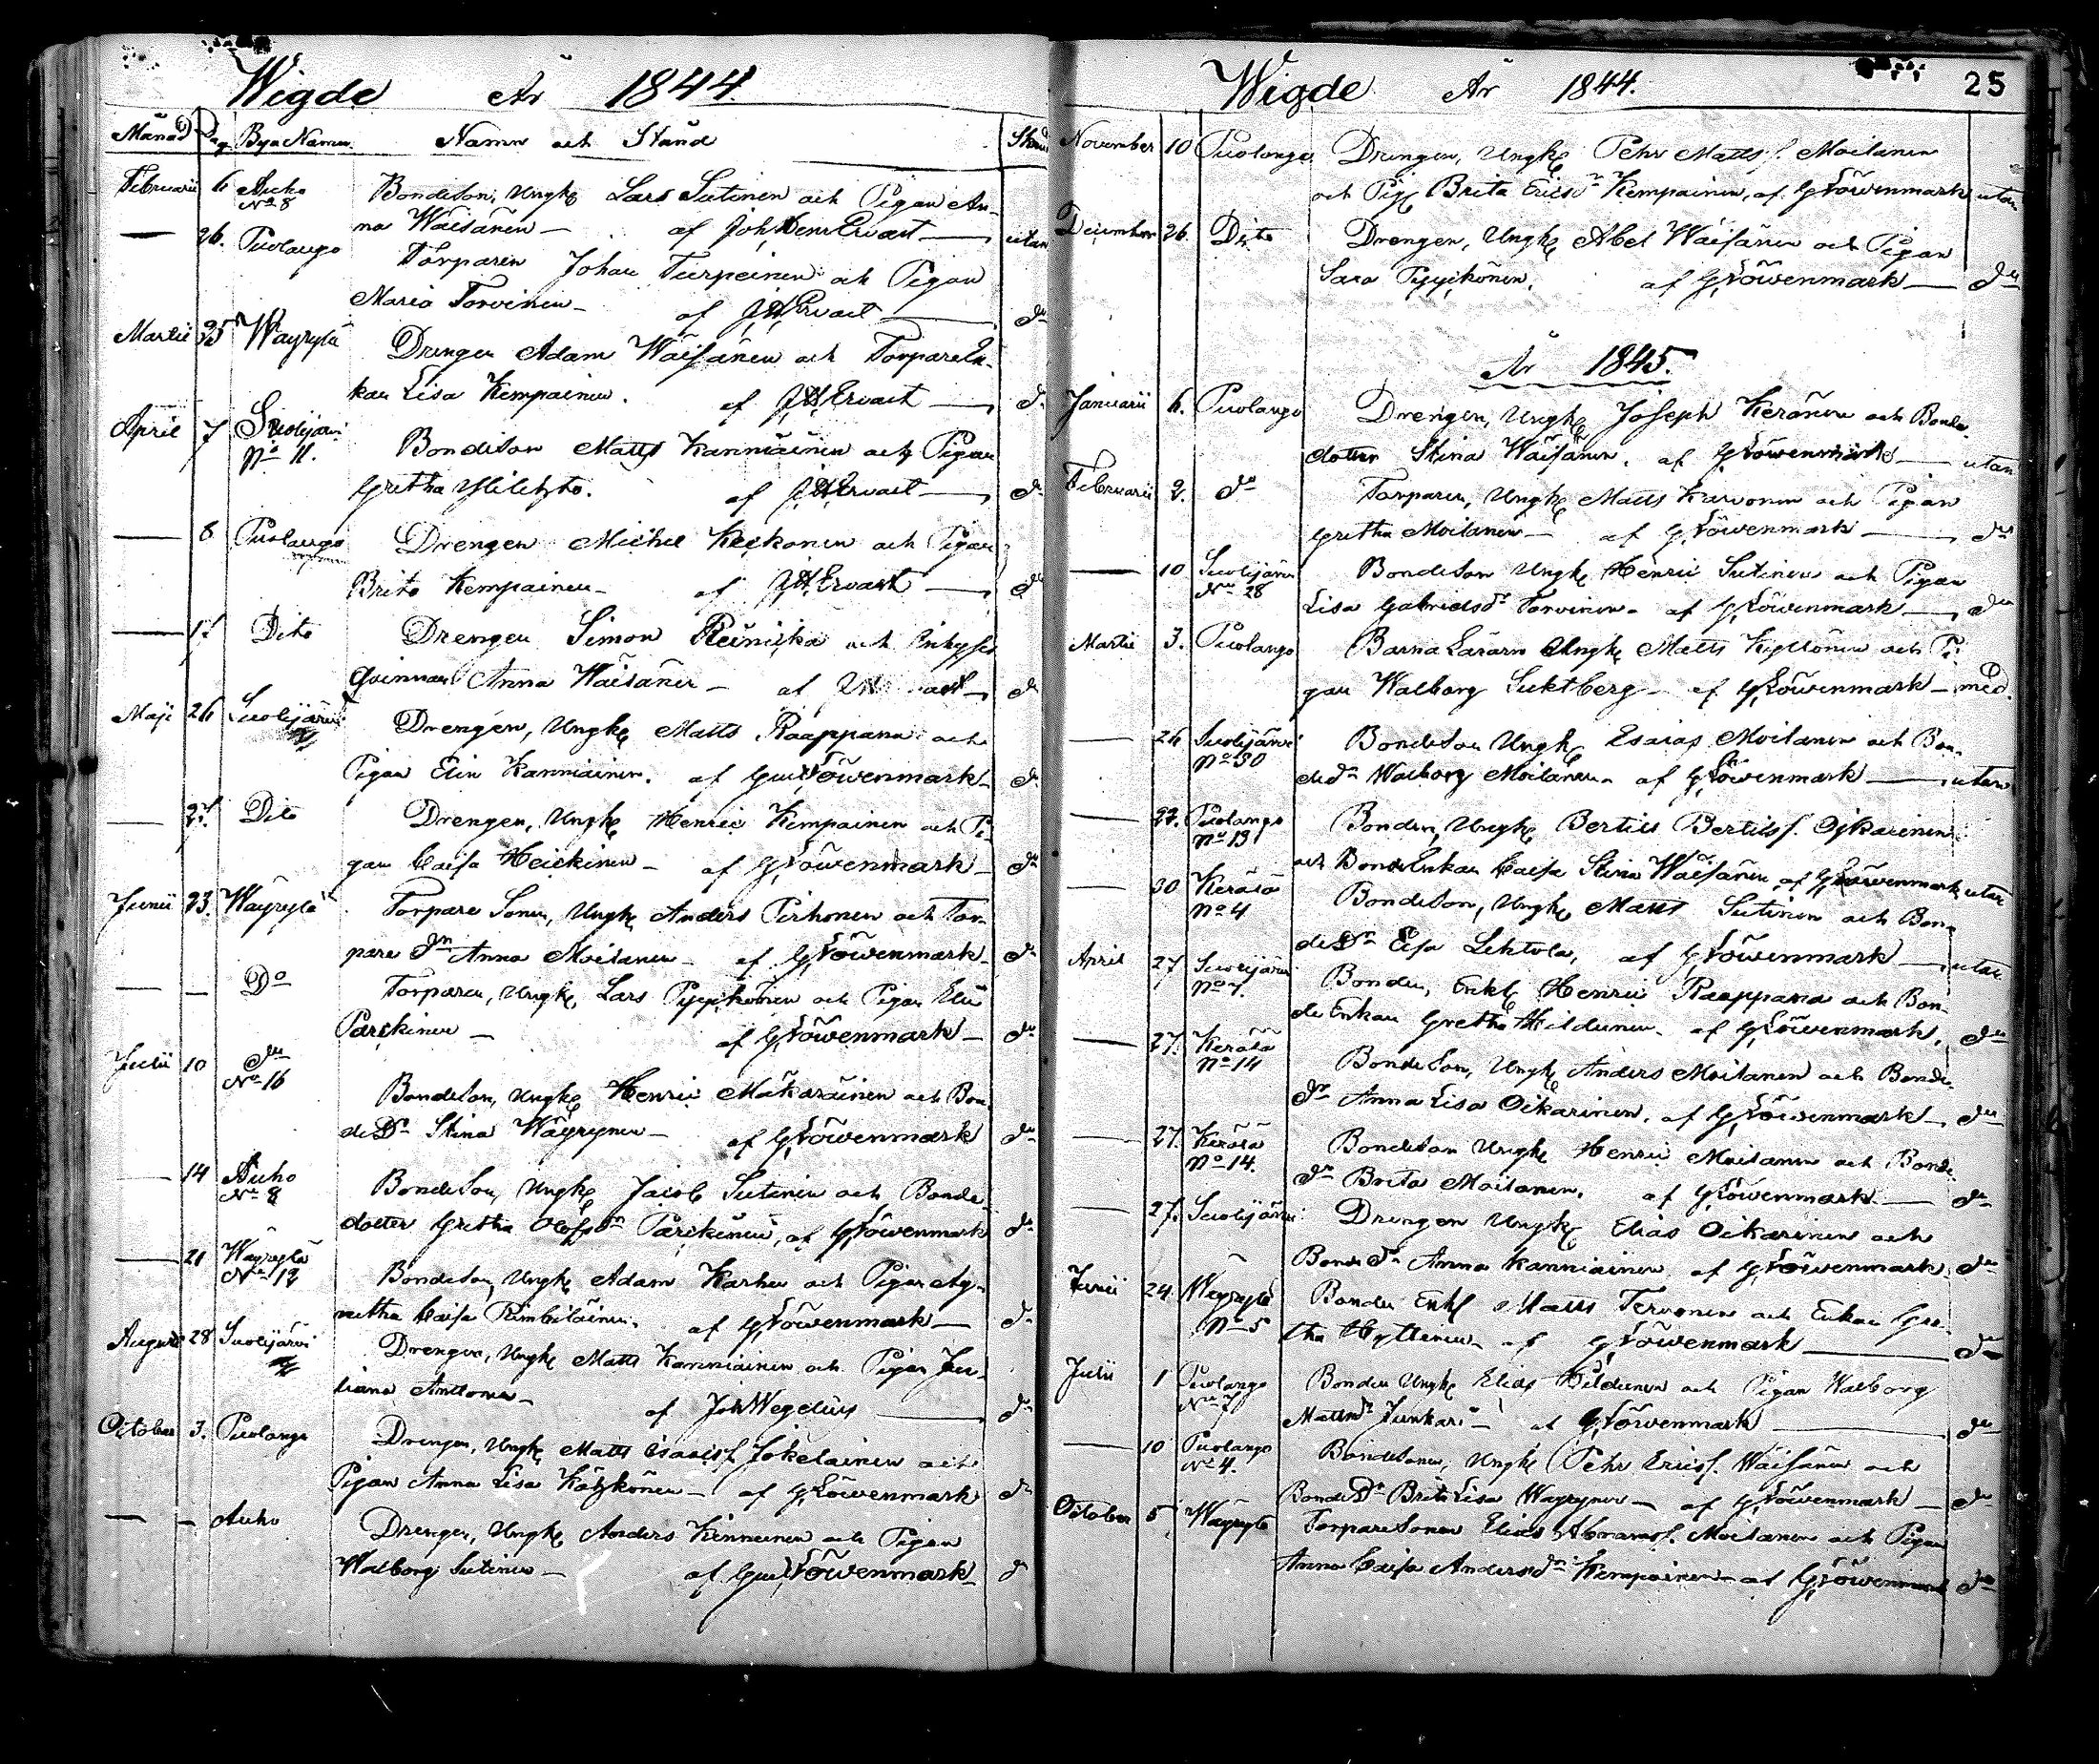 Wigde År 1844.
Månad Dag Bya Namn Namn och Stånd
Februarii 6 Auho Bondeson, Ungk Lars Sutinen och Pigan An-
No 8 na Wäisänen — af Joh Henr Ervast — utan
— 26. Puolango Torparen Johan Turpeinen och Pigan
Maria Torvinen — af JHErvast — do
Martii 25 Wäyrylä Drengen Adam Wäisänen och Torpare En-
kan Lisa Kempainen. af JHErvast — do
April 7 Suolijärvi Bondeson Matts Kanniainen och Pigan
No 11. Gretha Ylilehto. af JHErvast — do
— 8 Puolango Drengen Michel Keckonen och Pigan
Brita Kempainen — af JHErvast — do
— Dito Drengen Simon och
Qvinnan Anna Wäisänen — af — do
Maji 26 Suolijärvi Drengen, Ungk Matts Raappana och
Pigan Elin Kanniainen. af Gust Löwenmark — do
— Dito Drengen, Ungk Henric Kempainen och Pi-
gan Caisa Heickinen — af GLöwenmark — do
Junii 23. Wäyrylä Torpare Sonen, Ungk Anders Pirhonen och Tor-
pare dn Anna Moilanen — af GLöwenmark — do
— — Do Torparen, Ungk Lars Pyykönen och Pigan Elin
Parckinen — af GLöwenmark — do
Julii 10 do Bondeson, Ungk Henric Mäkäräinen och Bon-
No 16 de Dr Stina Wäyrynen — af GLöwenmark do
— 14 Auho Bondeson, Ungk Jacob Sutinen och Bonde
No 8 dotter Gretha Olofsdr Parckinen, af GLöwenmark do
— 21 Wäyrylä Bondeson, Ungk Adam Karhu och Pigan Ag-
No 12 netha Caisa Rimbiläinen. af GLöwenmark — do
Augusti 28 Suolijärvi Drengen, Ungk Matts Kanniainen och Pigan Ju-
liana Anttonen — af Joh Wegelius — do
October 3. Puolango Drengen, Ungk Matts Isacsf Jokelainen och
Pigan Anna Lisa Kätkönen — af GLöwenmark do
— — Auho Drengen, Ungk Anders Kinnunen och Pigan
Walborg Sutinen — af Gust Löwenmark — do
Wigde År 1844. 25
November 10 Puolango Drengen, Ungk Pehr Matts f. Moilanen
och Pig Brita Ericsdr Kempainen, af GLöwenmark utan
December 26. Dito Drengen, Ungk Abel Wäisänen och Pigan
Sara Pyykönen. af GLöwenmark — do
År 1845.
Januarii 6. Puolango Drengen, Ungk Joseph Keränen och Bonde-
dotter Stina Wäisänen. af GLöwenmark — utan
Februarii 2. do Torparen, Ungk Matts Karvonen och Pigan
Gretha Moilanen — af GLöwenmark — do
— 10 Suolijärvi Bondeson Ungk Henric Sutinen och Pigan
No 28 Lisa Gabrielsdr Torvinen — af GLöwenmark — do
Martii 3. Puolango Barna Läraren Ungk Matts Kyllönen och Pi-
gan Walborg Sucktberg — af GLöwenmark — med.
— 24 Suolijärvi Bondeson Ungk Esaias Moilanen och Bon-
No 30 de dr Walborg Moilanen — af GLöwenmark — utan
— Puolango Bonden, Ungk Bertill Bertilsf. Ojkarinen
No 13 och Bonde Enkan Caisa Stina Wäisänen af GLöwenmark utan
— 30 Kerälä Bondeson, Ungk Matts Sutinen och Bon-
No 4 de Dr Lisa Lehtola, af GLöwenmark — utan
April 27 Suolijärvi Bonden, Enkl Henric Raappana och Bon-
No 7. de Enkan Gretha Hildunen — af GLöwenmark. do
— 27. Kerälä Bondeson, Ungk Anders Moilanen och Bonde
No 14 dr Anna Lisa Oikarinen, af GLöwenmark — do
— 27. Kerälä Bondeson Ungk Henric Moilanen och Bonde
No 14. dr Brita Moilanen. af GLöwenmark — do
— 27. Suolijärvi Drengen Ungk Elias Oikarinen och
Bonde dr Anna Kanniainen af GLöwenmark. do
Junii 24. Wäyrylä Bonden Enkl Matts Tervonen och Enkan Gre-
No 5 tha Hyttinen — af GLöwenmark — do
Julii 1 Puolango Bonden Ungk Elias Hildunen och Pigan Walborg
No 7 Mattsdr Junkari — af GLöwenmark — do
— 10 Puolango Bondesonen, Ungk Pehr Ericsf. Wäisänen och
No 4. Bonde Dr Brita Lisa Wäyrynen — af GLöwenmark — do
October 5 Wäyrylä Torparesonen Elias Abramsf. Moilanen och Pigan
Anna Caisa Andersdr Kempainen — af GLöwenmark do